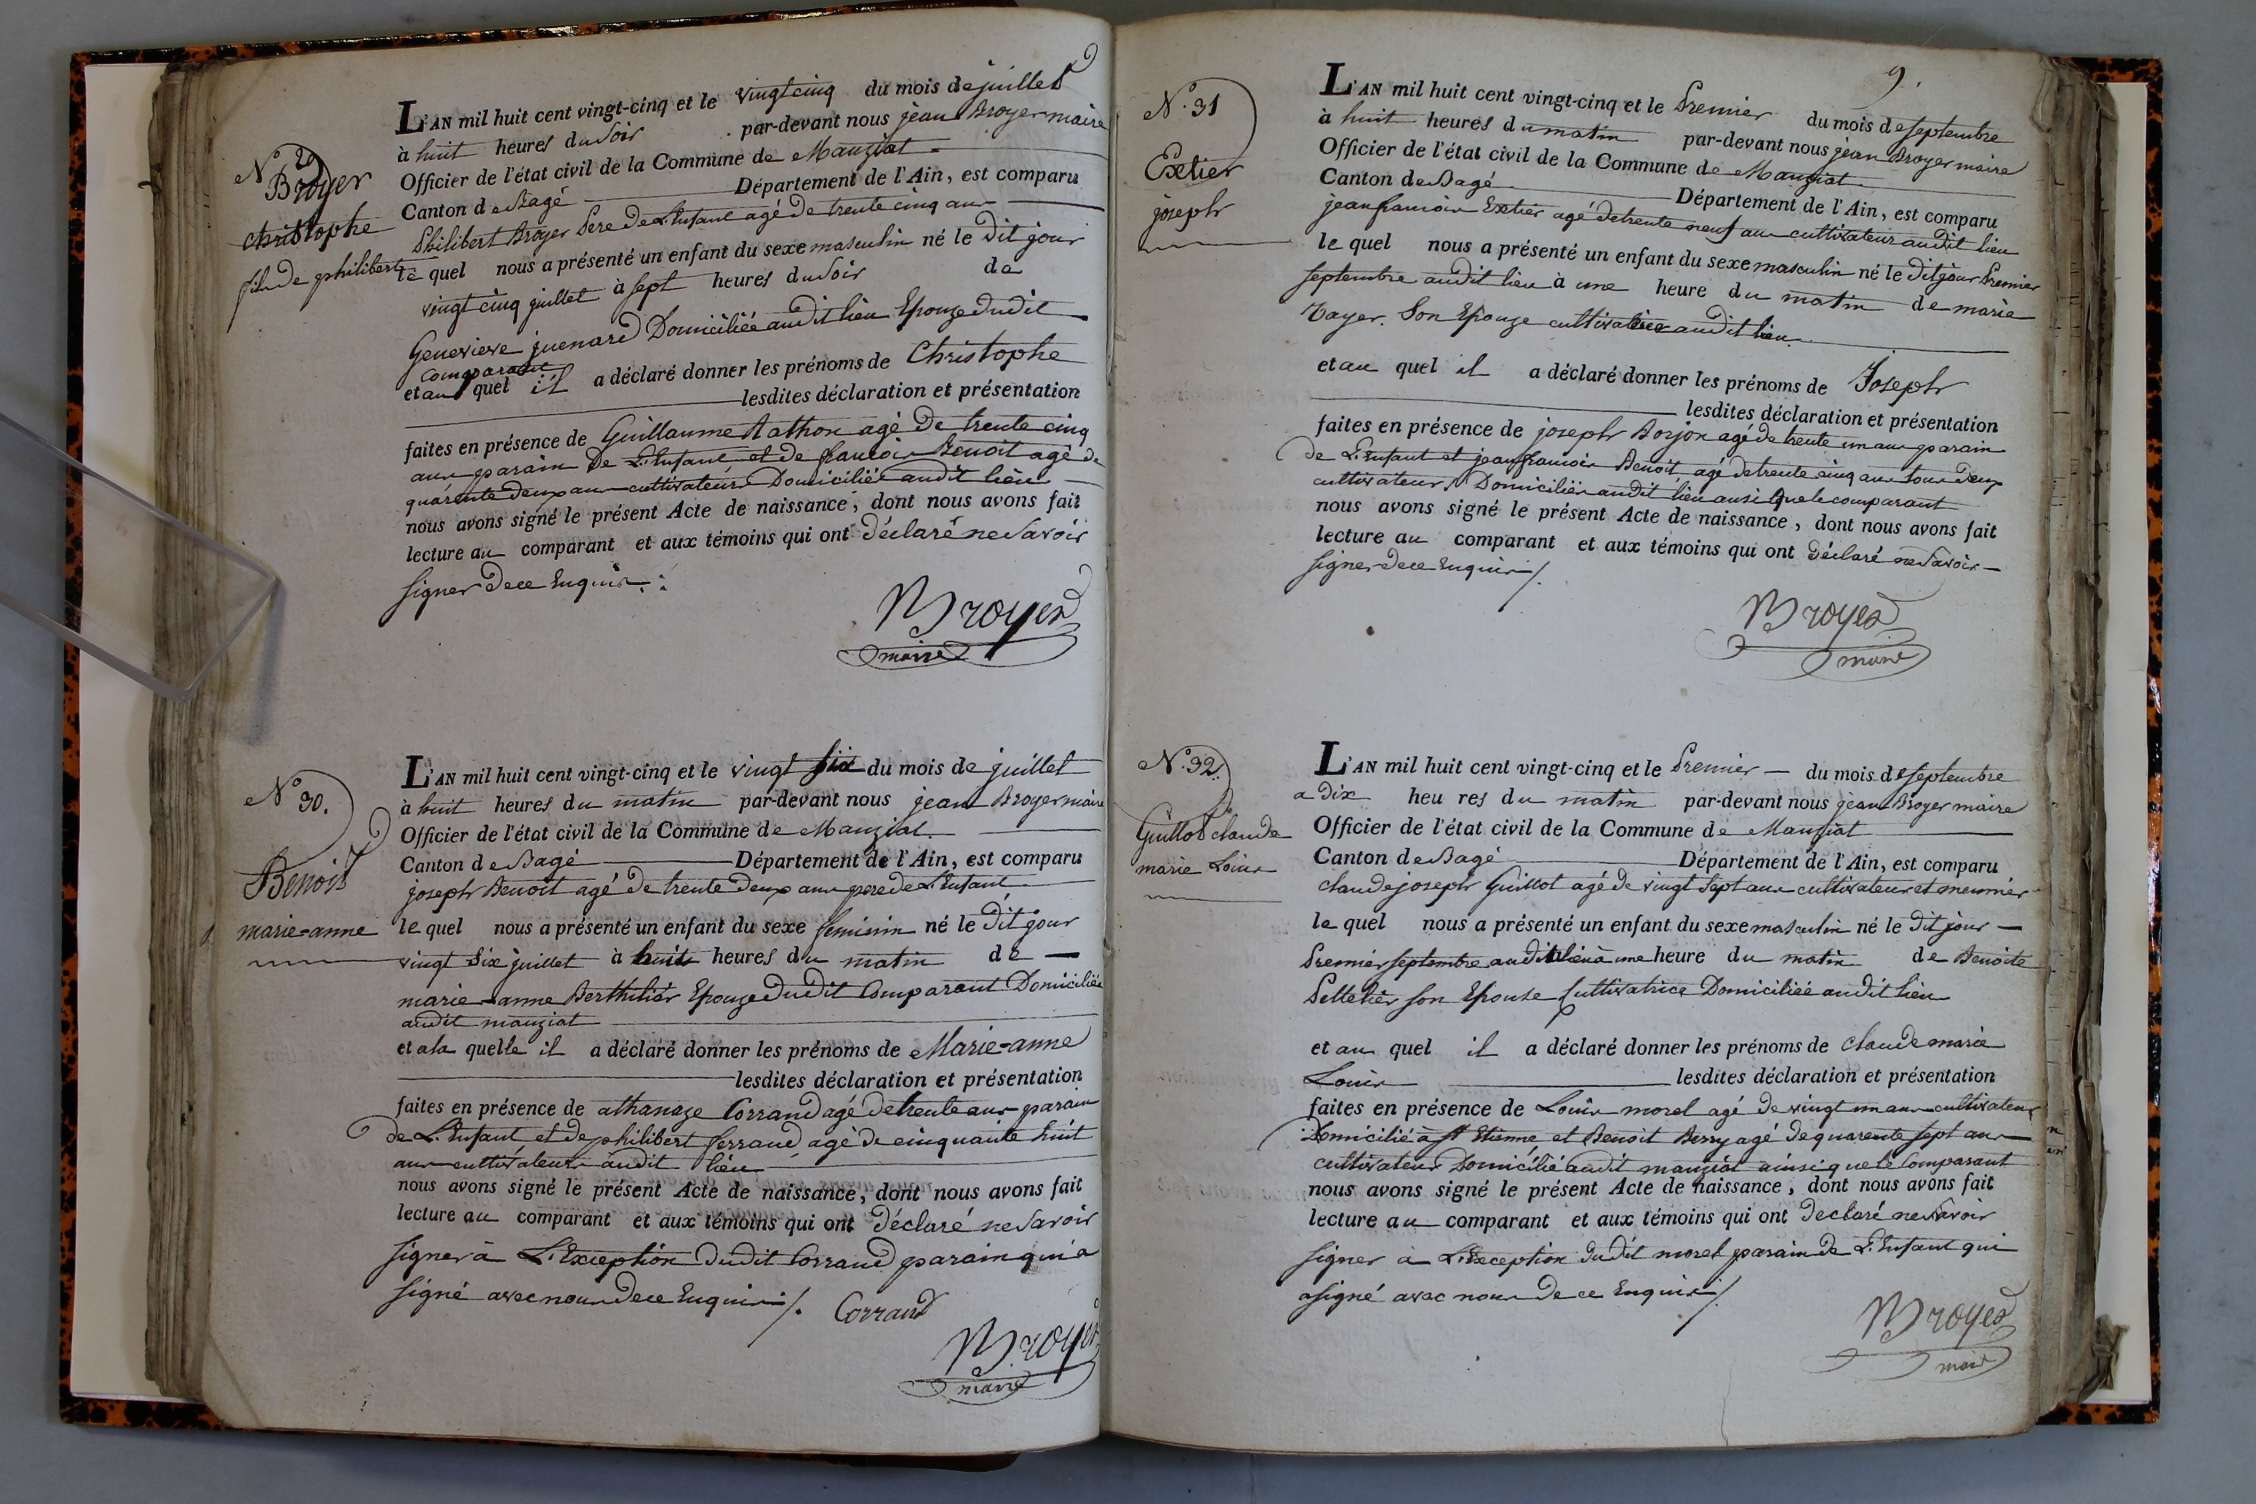 N° 29
Broyer
christophe
fils de philibert
L'AN mil huit cent vingt-cinq et le vingt cinq du mois de juillet
à huit heures du soir par-devant nous jean Broyer maire
Officier de l'état civil de la Commune de Manziat
Canton de Bagé Département de l'Ain, est comparu
Philibert Broyer Pere de L'Enfant agé de trente cinq ans
le quel nous a présenté un enfant du sexe masculin né le Dit jour
vingt cinq juillet à sept heures du soir de
Genevieve juenard Domiciliée audit lieu Epouze dudit
comparant
et au quel il a déclaré donner les prénoms de Christophe
lesdites déclaration et présentation
faites en présence de Guillaume Rathon agé De trente cinq
ans parain De L'Enfant et de francois Benoit agé de
quarente deux ans cultivateurs Domiciliée audit lieu
nous avons signé le présent Acte de naissance, dont nous avons fait
lecture au comparant et aux témoins qui ont déclaré ne savoir
signer De ce Enquis
Broyer
maire
N° 30.
Benoit
marie-anne
L'AN mil huit cent vingt-cinq et le vingt six du mois de juillet
à huit heures du matin par-devant nous jean Broyer maire
Officier de l'état civil de la Commune de Manziat.
Canton de Bagé Département de l'Ain, est comparu
joseph Benoit agé de trente deux ans pere de L'Enfant
le quel nous a présenté un enfant du sexe feminin né le Dit jour
vingt six juillet à huit heures du matin de
marie-anne Berthilier Epouze dudit Comparant Domiciliée
audit manziat
et a la quelle il a déclaré donner les prénoms de Marie-anne
lesdites déclaration et présentation
faites en présence de athanaze Corrand agé de trente ans parain
de L'Enfant et de philibert ferrand agé de cinquante huit
ans cultivateurs audit lieu
nous avons signé le présent Acte de naissance, dont nous avons fait
lecture au comparant et aux témoins qui ont déclaré ne savoir
signer à L'Exception Dudit Corrand parain qui a
signé avec nous De ce Enquis /.
Corrand
Broyer
maire
9.
N° 31
Extier
joseph
L'AN mil huit cent vingt-cinq et le Premier du mois de septembre
à huit heures du matin par-devant nous jean Broyer maire
Officier de l'état civil de la Commune de Manziat
Canton de Bagé Département de l'Ain, est comparu
jean francois Extier agé de trente neuf ans cultivateur audit lieu
le quel nous a présenté un enfant du sexe masculin né le Dit jour Premier
septembre audit lieu à une heure du matin de marie
Tayer. Son Epouze cultivatrice audit lieu
et au quel il a déclaré donner les prénoms de Joseph
lesdites déclaration et présentation
faites en présence de joseph Borjon agé de trente un ans parain
de L'Enfant et jean francois Benoit agé de trente cinq ans tous deux
cultivateurs Domiciliés audit lieu ausi que le comparant
nous avons signé le présent Acte de naissance, dont nous avons fait
lecture au comparant et aux témoins qui ont déclaré ne savoir
signer de ce Enquis /.
Broyer
maire
N° 32.
Guillot claude
marie Louis
L'AN mil huit cent vingt-cinq et le Premier du mois de septembre
a Dix heures du matin par-devant nous jean Broyer maire
Officier de l'état civil de la Commune de Manziat
Canton de Bagé Département de l'Ain, est comparu
claude joseph Guillot agé de vingt sept ans cultivateur et meunier
le quel nous a présenté un enfant du sexe masculin né le Dit jour
Premier septembre audit lieu à une heure du matin de Benoite
Pelletier son Epouse Cultivatrice Domiciliée audit lieu
et au quel il a déclaré donner les prénoms de Claude marie
Louis lesdites déclaration et présentation
faites en présence de Louis morel agé de vingt un ans cultivateur
Domicilié à St Etienne et Benoit Berry agé de quarente sept ans
cultivateur Domicilié audit manziat ainsi que le Comparant
nous avons signé le présent Acte de naissance, dont nous avons fait
lecture au comparant et aux témoins qui ont déclaré ne savoir
signer à L'Exception du dit morel parain de L'Enfant qui
a signé avec nous De ce Enquis /.
Broyer
maire